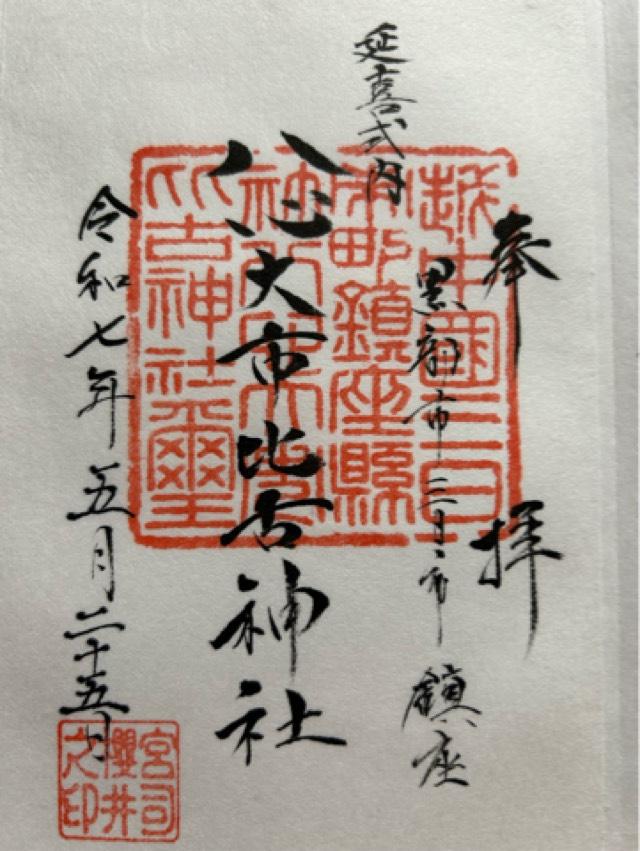 奉拝
延喜式内
黒部市三日市鎮座
八心大市比古神社
令和七年五月二十五日
越中國三日
市町鎮座縣
社
比古神社璽
宮司
櫻井
之印